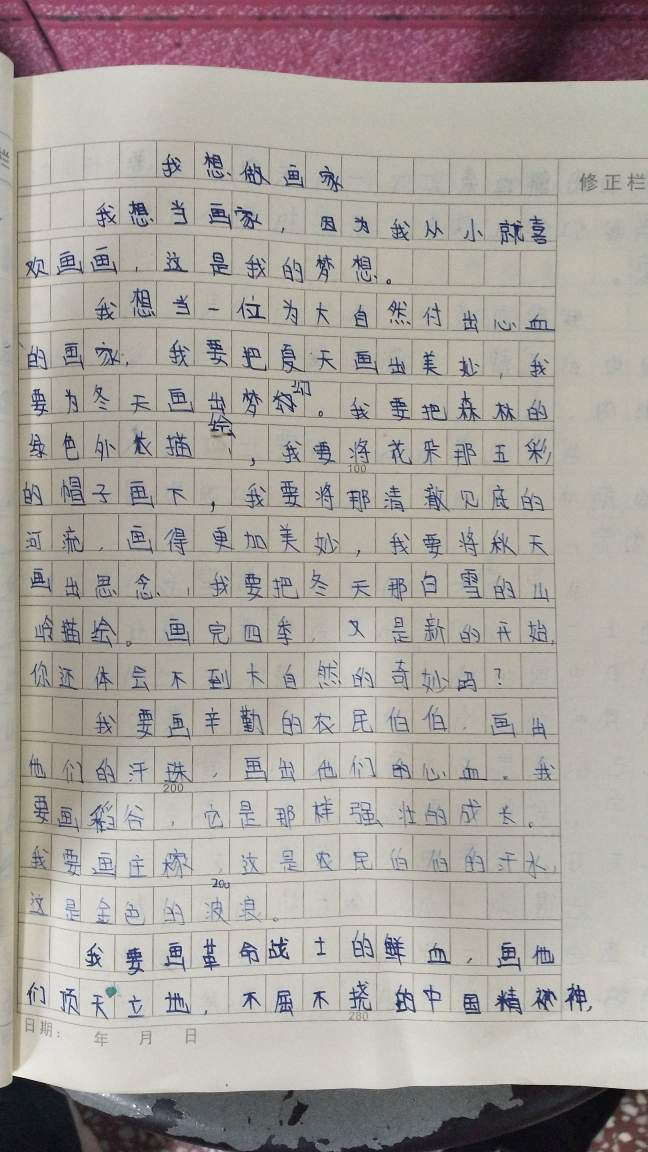 我想做画家
修正栏
我想当画家，因为我从小就喜
欢画画，这是我的梦想。
我想当一位为大自然付出心血
的画家，我要把夏天画出美妙，我
要为冬天画出梦幻。我要把森林的
绿色外衣描绘，我要将花朵那五彩
100
的帽子画下，我要将那清澈见底的
河流，画得更加美妙，我要将秋天
画出思念，我要把冬天那白雪的山
岭描绘。画完四季，又是新的开始，
你还体会不到大自然的奇妙吗？
我要画辛勤的农民伯伯，画出
他们的汗珠，画出他们的心血。我
200
要画稻谷，它是那样强壮的成长。
我要画庄稼，这是农民伯伯的汗水，
200
这是金色的波浪。
我要画革命战士的鲜血，画他
们顶天立地，不屈不挠的中国精神，
280
日期： 年 月 日